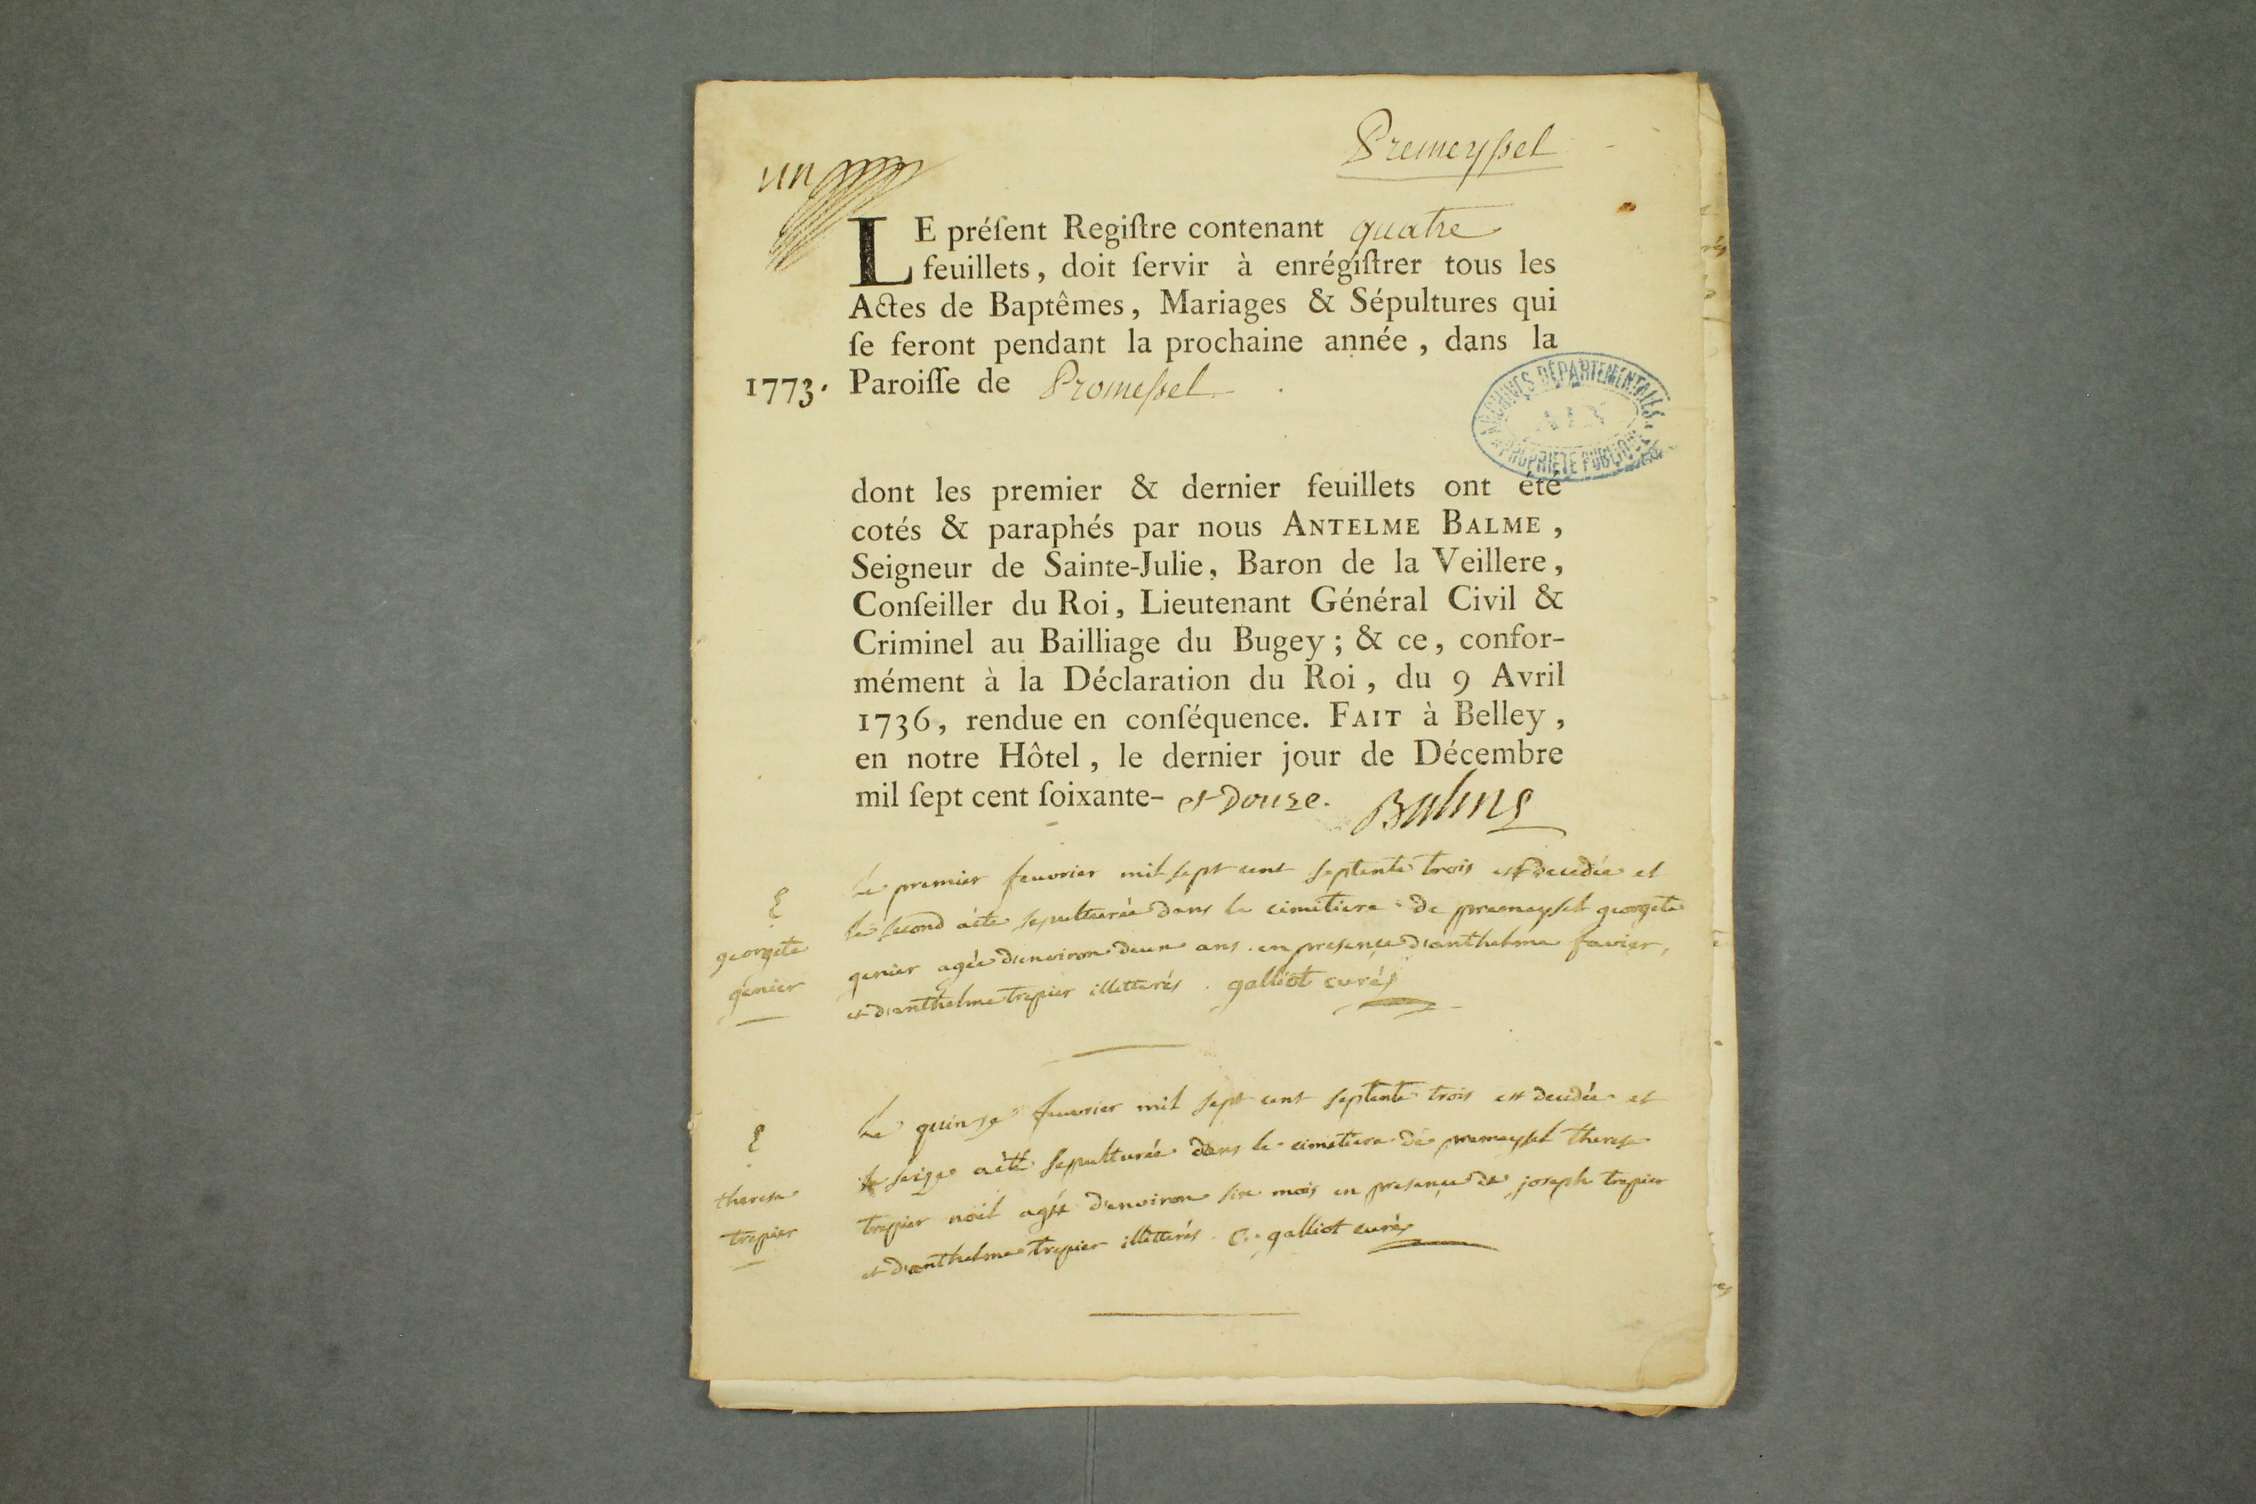 un
Premeyssel
LE préſent Regiſtre contenant quatre
feuillets, doit ſervir à enrégiſtrer tous les
Actes de Baptêmes, Mariages & Sépultures qui
ſe feront pendant la prochaine année, dans la
1773. Paroiſſe de Promessel
ARCHIVES DÉPARTEMENTALES
AIN
PROPRIÉTÉ PUBLIQUE
dont les premier & dernier feuillets ont été
cotés & paraphés par nous ANTELME BALME,
Seigneur de Sainte-Julie, Baron de la Veillere,
Conſeiller du Roi, Lieutenant Général Civil &
Criminel au Bailliage du Bugey; & ce, confor-
mément à la Déclaration du Roi, du 9 Avril
1736, rendue en conſéquence. FAIT à Belley,
en notre Hôtel, le dernier jour de Décembre
mil ſept cent ſoixante- et Douze. Balme
georgete
genier
Le premier feuvrier mil sept cent septente trois est decedée et
le second a été sepulturée dans le cimetiere de premeyssel georgete
genier agée d'environ deux ans en presence d'anthelme favier,
et d'anthelme trepier illetterés. galliot curé
therese
trepier
Le quinze feuvrier mil sept cent septente trois est decedée et
le seize a été sepulturée dans le cimetiere de premeyssel therese
trepier noël agée d'environ six mois en presence de joseph trepier
et d'anthelme trepier illetterés. C. galliot curé